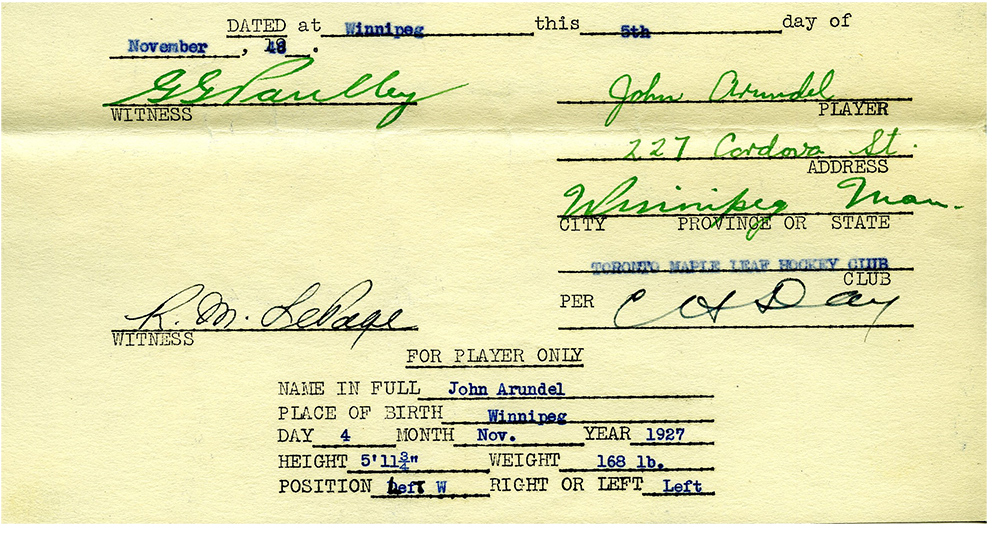 DATED at Winnipeg this 5th day of
November, 1948.
GG Paulley John Arundel
WITNESS PLAYER
227 Cordova St.
ADDRESS
Winnipeg Man.
CITY PROVINCE OR STATE
TORONTO MAPLE LEAF HOCKEY CLUB
CLUB
R. M. LePage PER C H Day
WITNESS
FOR PLAYER ONLY
NAME IN FULL John Arundel
PLACE OF BIRTH Winnipeg
DAY 4 MONTH Nov. YEAR 1927
HEIGHT 5'11¾" WEIGHT 168 lb.
POSITION Left W RIGHT OR LEFT Left